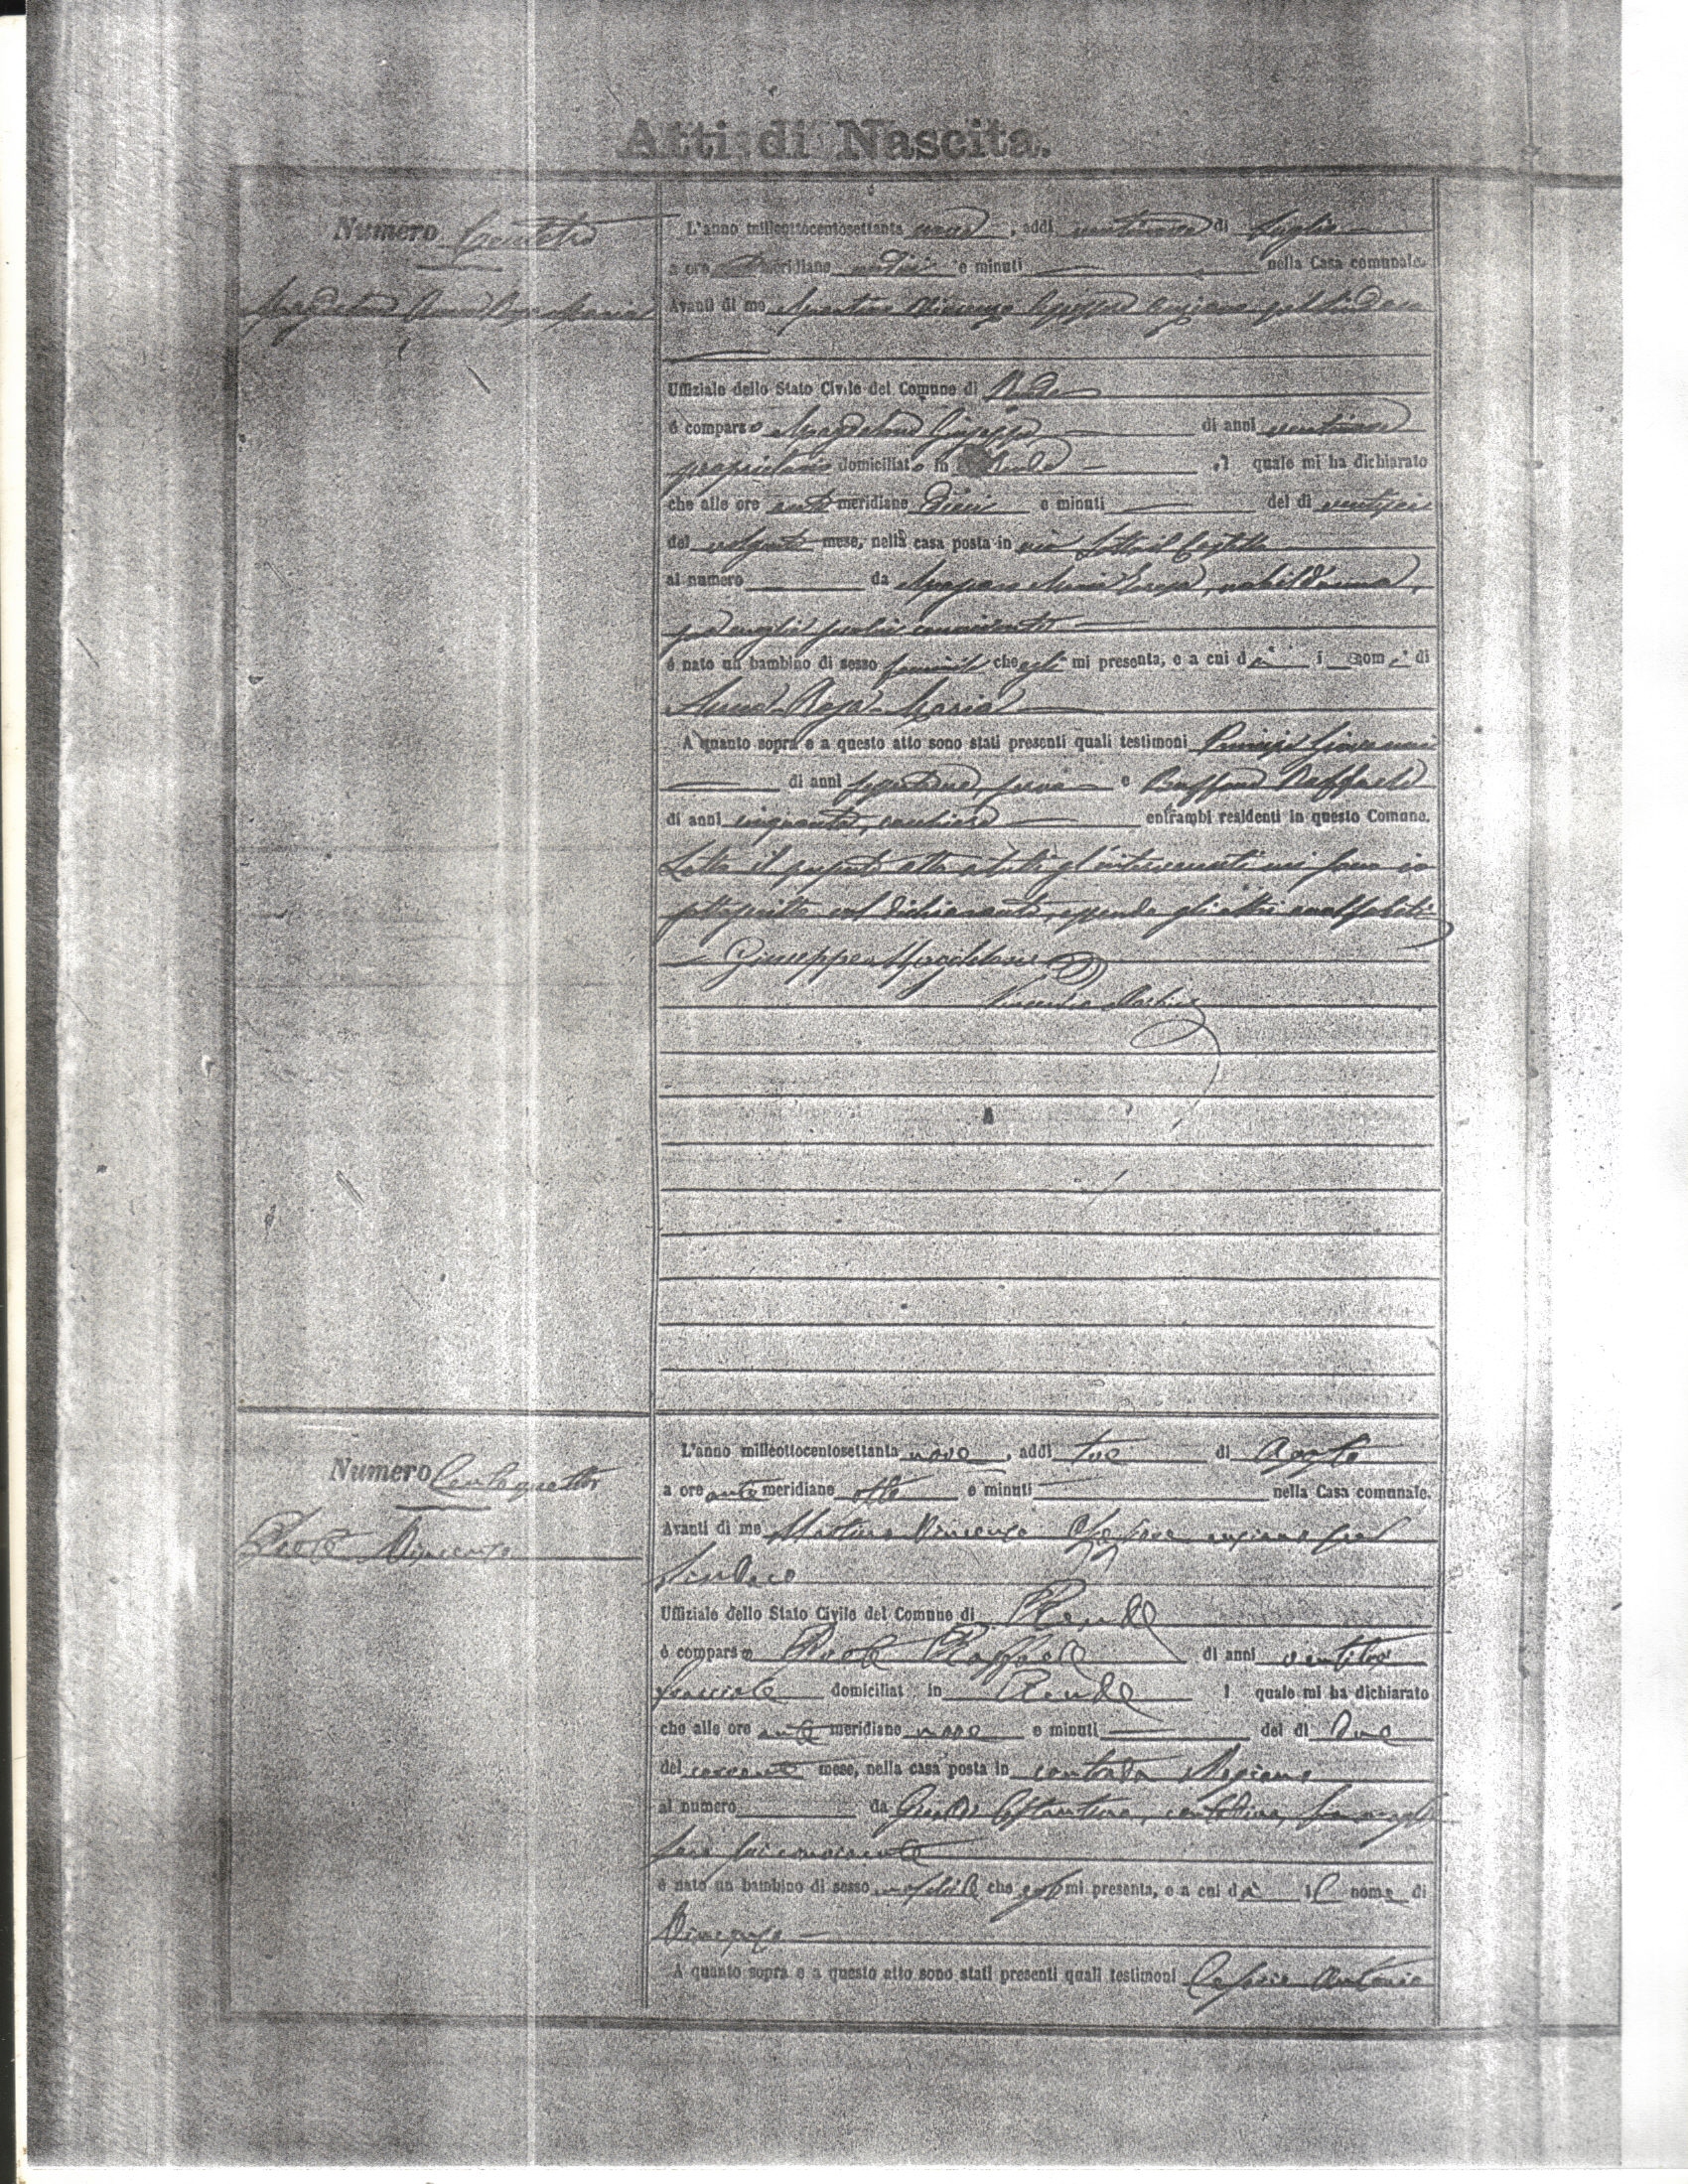 Atti di Nascita.
Numero Centotre
Magdalone Anna Rosa Maria
L'anno milleottocentosettanta nove, addì ventinove di Luglio
a ore meridiane undici e minuti nella Casa comunale.
Avanti di me Martino Vincenzo Assessore anziano pel Sindaco
Uffiziale dello Stato Civile del Comune di Rende
è comparso Magdalone Giuseppe di anni ventinove
proprietario domiciliato in Rende il quale mi ha dichiarato
che alle ore ante meridiane dieci e minuti del dì ventisei
del volgente mese, nella casa posta in via Sotto il Castello
al numero da Maria Teresa, nobildonna,
sua moglie seco lui convivente
è nato un bambino di sesso feminile che egli mi presenta, e a cui dà i nomi di
Anna Rosa Maria
A quanto sopra e a questo atto sono stati presenti quali testimoni Principe Giovanni
di anni e Raffaele
di anni cinquanta, entrambi residenti in questo Comune.
Letto il presente atto a tutti gl'intervenuti mi sono io
sottoscritto col dichiarante, essendo gli altri analfabeti
Giuseppe Magdalone
Vincenzo Martino
Numero Centoquattro
Vincenzo
L'anno milleottocentosettanta nove, addì tre di Agosto
a ore ante meridiane otto e minuti nella Casa comunale.
Avanti di me Martino Vincenzo Assessore anziano pel
Sindaco
Uffiziale dello Stato Civile del Comune di Rende
è comparso Raffaele di anni ventitre
domiciliat in Rende l quale mi ha dichiarato
che alle ore ante meridiane nove e minuti del dì due
del corrente mese, nella casa posta in contrada
al numero da Costantina, contadina, sua moglie
seco lui convivente
è nato un bambino di sesso maschile che egli mi presenta, e a cui dà il nome di
Vincenzo
A quanto sopra e a questo atto sono stati presenti quali testimoni Antonio